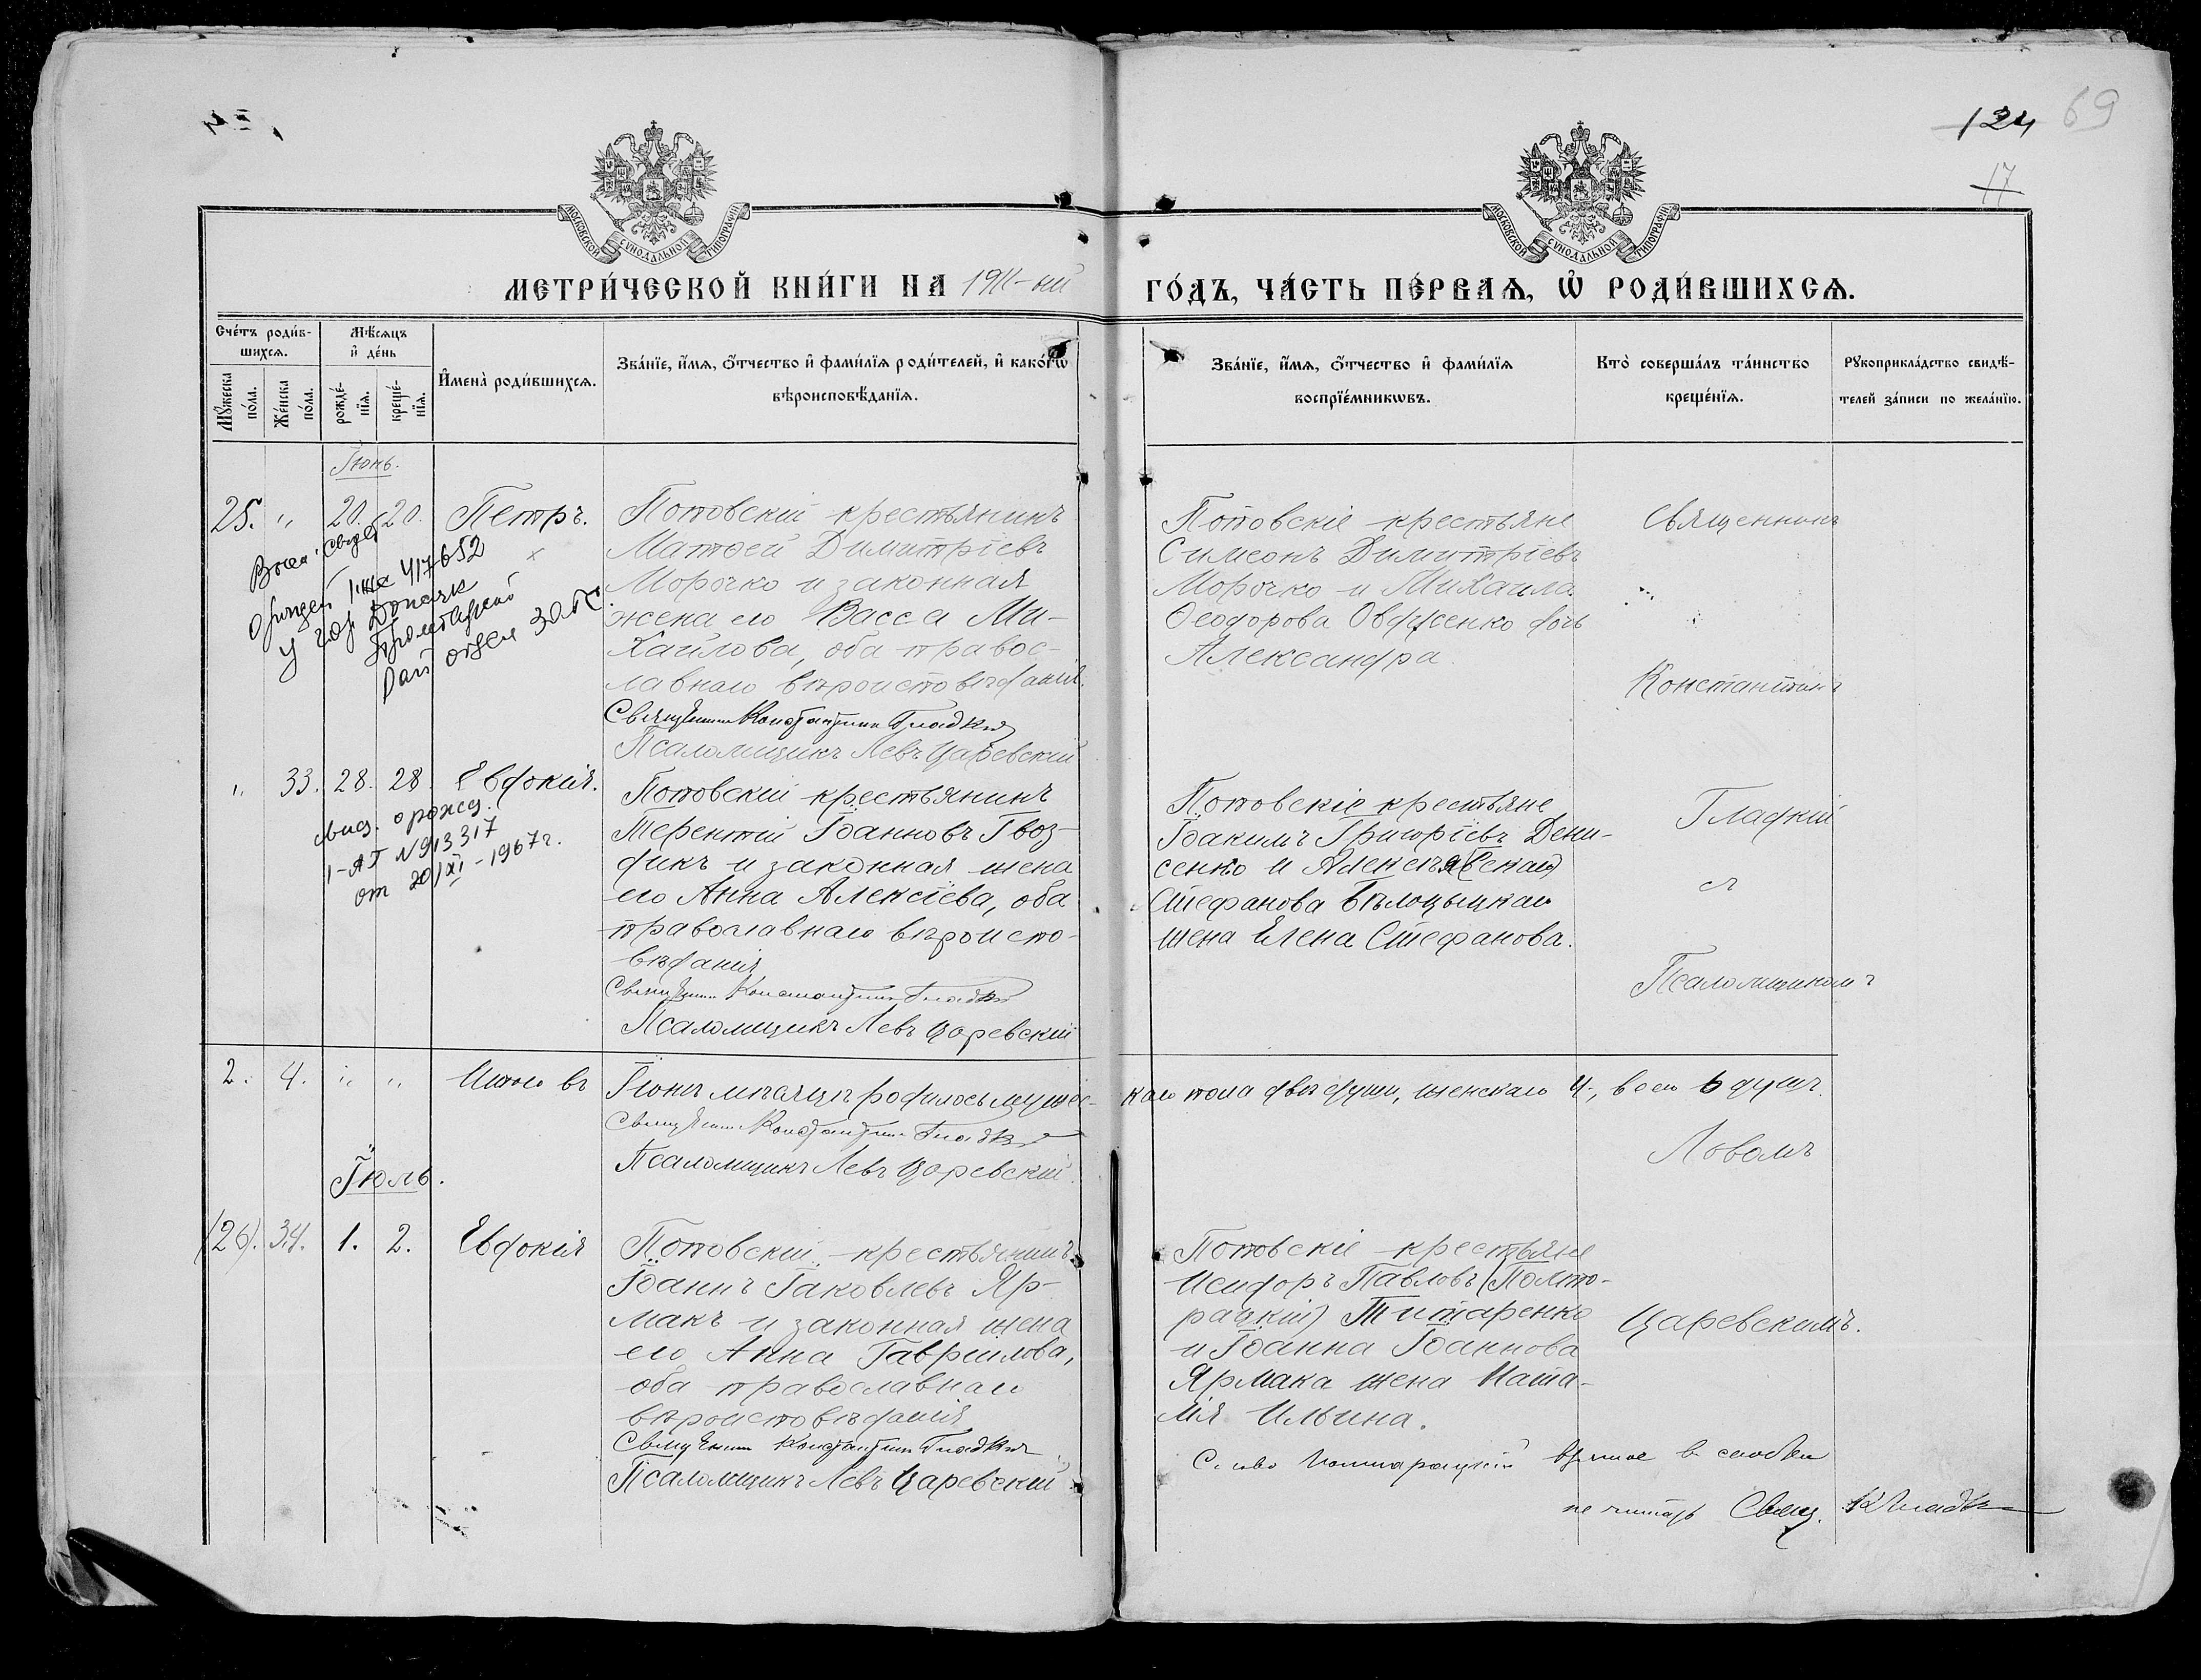 124 69
17
МОСКОВСКОЙ СѴНОДАЛЬНОЙ ТИПОГРАФІИ
МОСКОВСКОЙ СѴНОДАЛЬНОЙ ТИПОГРАФІИ
МЕТРИ́ЧЕСКОЙ КНИ́ГИ НА 1911-ый
ГО́ДЪ, ЧА́СТЬ ПЕ́РВАѦ, Ѡ҆ РОДИ́ВШИХСѦ.
Сче́тъ роди́в-
шихсѧ.
Мѣ́сѧцъ
и҆ де́нь
Мꙋ́жеска
по́ла.
Же́нска
по́ла.
рожде́-
нїѧ.
креще́-
нїѧ.
И҆мена̀ роди́вшихсѧ.
Зва́нїе, и҆́мѧ, ѻ҆́тчество и҆ фами́лїѧ роди́телей, и҆ како́гѡ
вѣроисповѣ́данїѧ.
Зва́нїе, и҆́мѧ, ѻ҆́тчество и҆ фами́лїѧ
воспрїе́мникѡвъ.
Кто̀ соверша́лъ та́инство
креще́нїѧ.
Рꙋкоприкла́дство свидѣ́-
телей за́писи по жела́нїю.
Іюнь.
25. „ 20. 20. Петръ.
Поповскій крестьянинъ
Матѳей Димитріевъ
Морочко и законная
жена его Васса Ми-
хайлова, оба правос-
лавнаго вѣроисповѣданія.
Священникъ Константинъ Гладкій
Псаломщикъ Левъ Царевскій
417652
Поповскіе крестьяне
Симеонъ Димитріевъ
Морочко и Михаила
Ѳеодорова Овдіенко дочь
Александра.
Священникъ
Константинъ
„ 33. 28. 28. Евдокія.
свид. о рожд.
1-АГ N 913317
от 20/XI-1967 г.
Поповскій крестьянинъ
Терентій Іоанновъ Гвоз-
дикъ и законная жена
его Анна Алексіева, оба
православнаго вѣроиспо-
вѣданія
Священникъ Константинъ Гладкій
Псаломщикъ Левъ Царевскій
Поповскіе крестьяне
Іоакимъ Григоріевъ Дени-
сенко и
Стефанова Бѣлоцыцкаго
жена Елена Стефанова.
Гладкій
съ
Псаломщикомъ
2. 4. „ „ Итого въ Іюнѣ мѣсяцѣ родилось мужес-
каго пола двѣ души, женскаго 4, всего 6 душъ.
Священникъ Константинъ Гладкій
Псаломщикъ Левъ Царевскій.
Львомъ
Іюль.
(26). 34. 1. 2. Евдокія
Поповскій крестьянинъ
Іоаннъ Іаковлевъ Яр-
макъ и законная жена
его Анна Гавріилова,
оба православнаго
вѣроисповѣданія
Священникъ Константинъ Гладкій
Псаломщикъ Левъ Царевскій
Поповскіе крестьяне
Исидоръ Павловъ (Полто-
рацкій) Титаренко
и Іоанна Іоаннова
Ярмака жена Ната-
лія Ильина.
Царевскимъ.
Слово Полторацкій взятое в скобки
не читать Свящ. К Гладкій